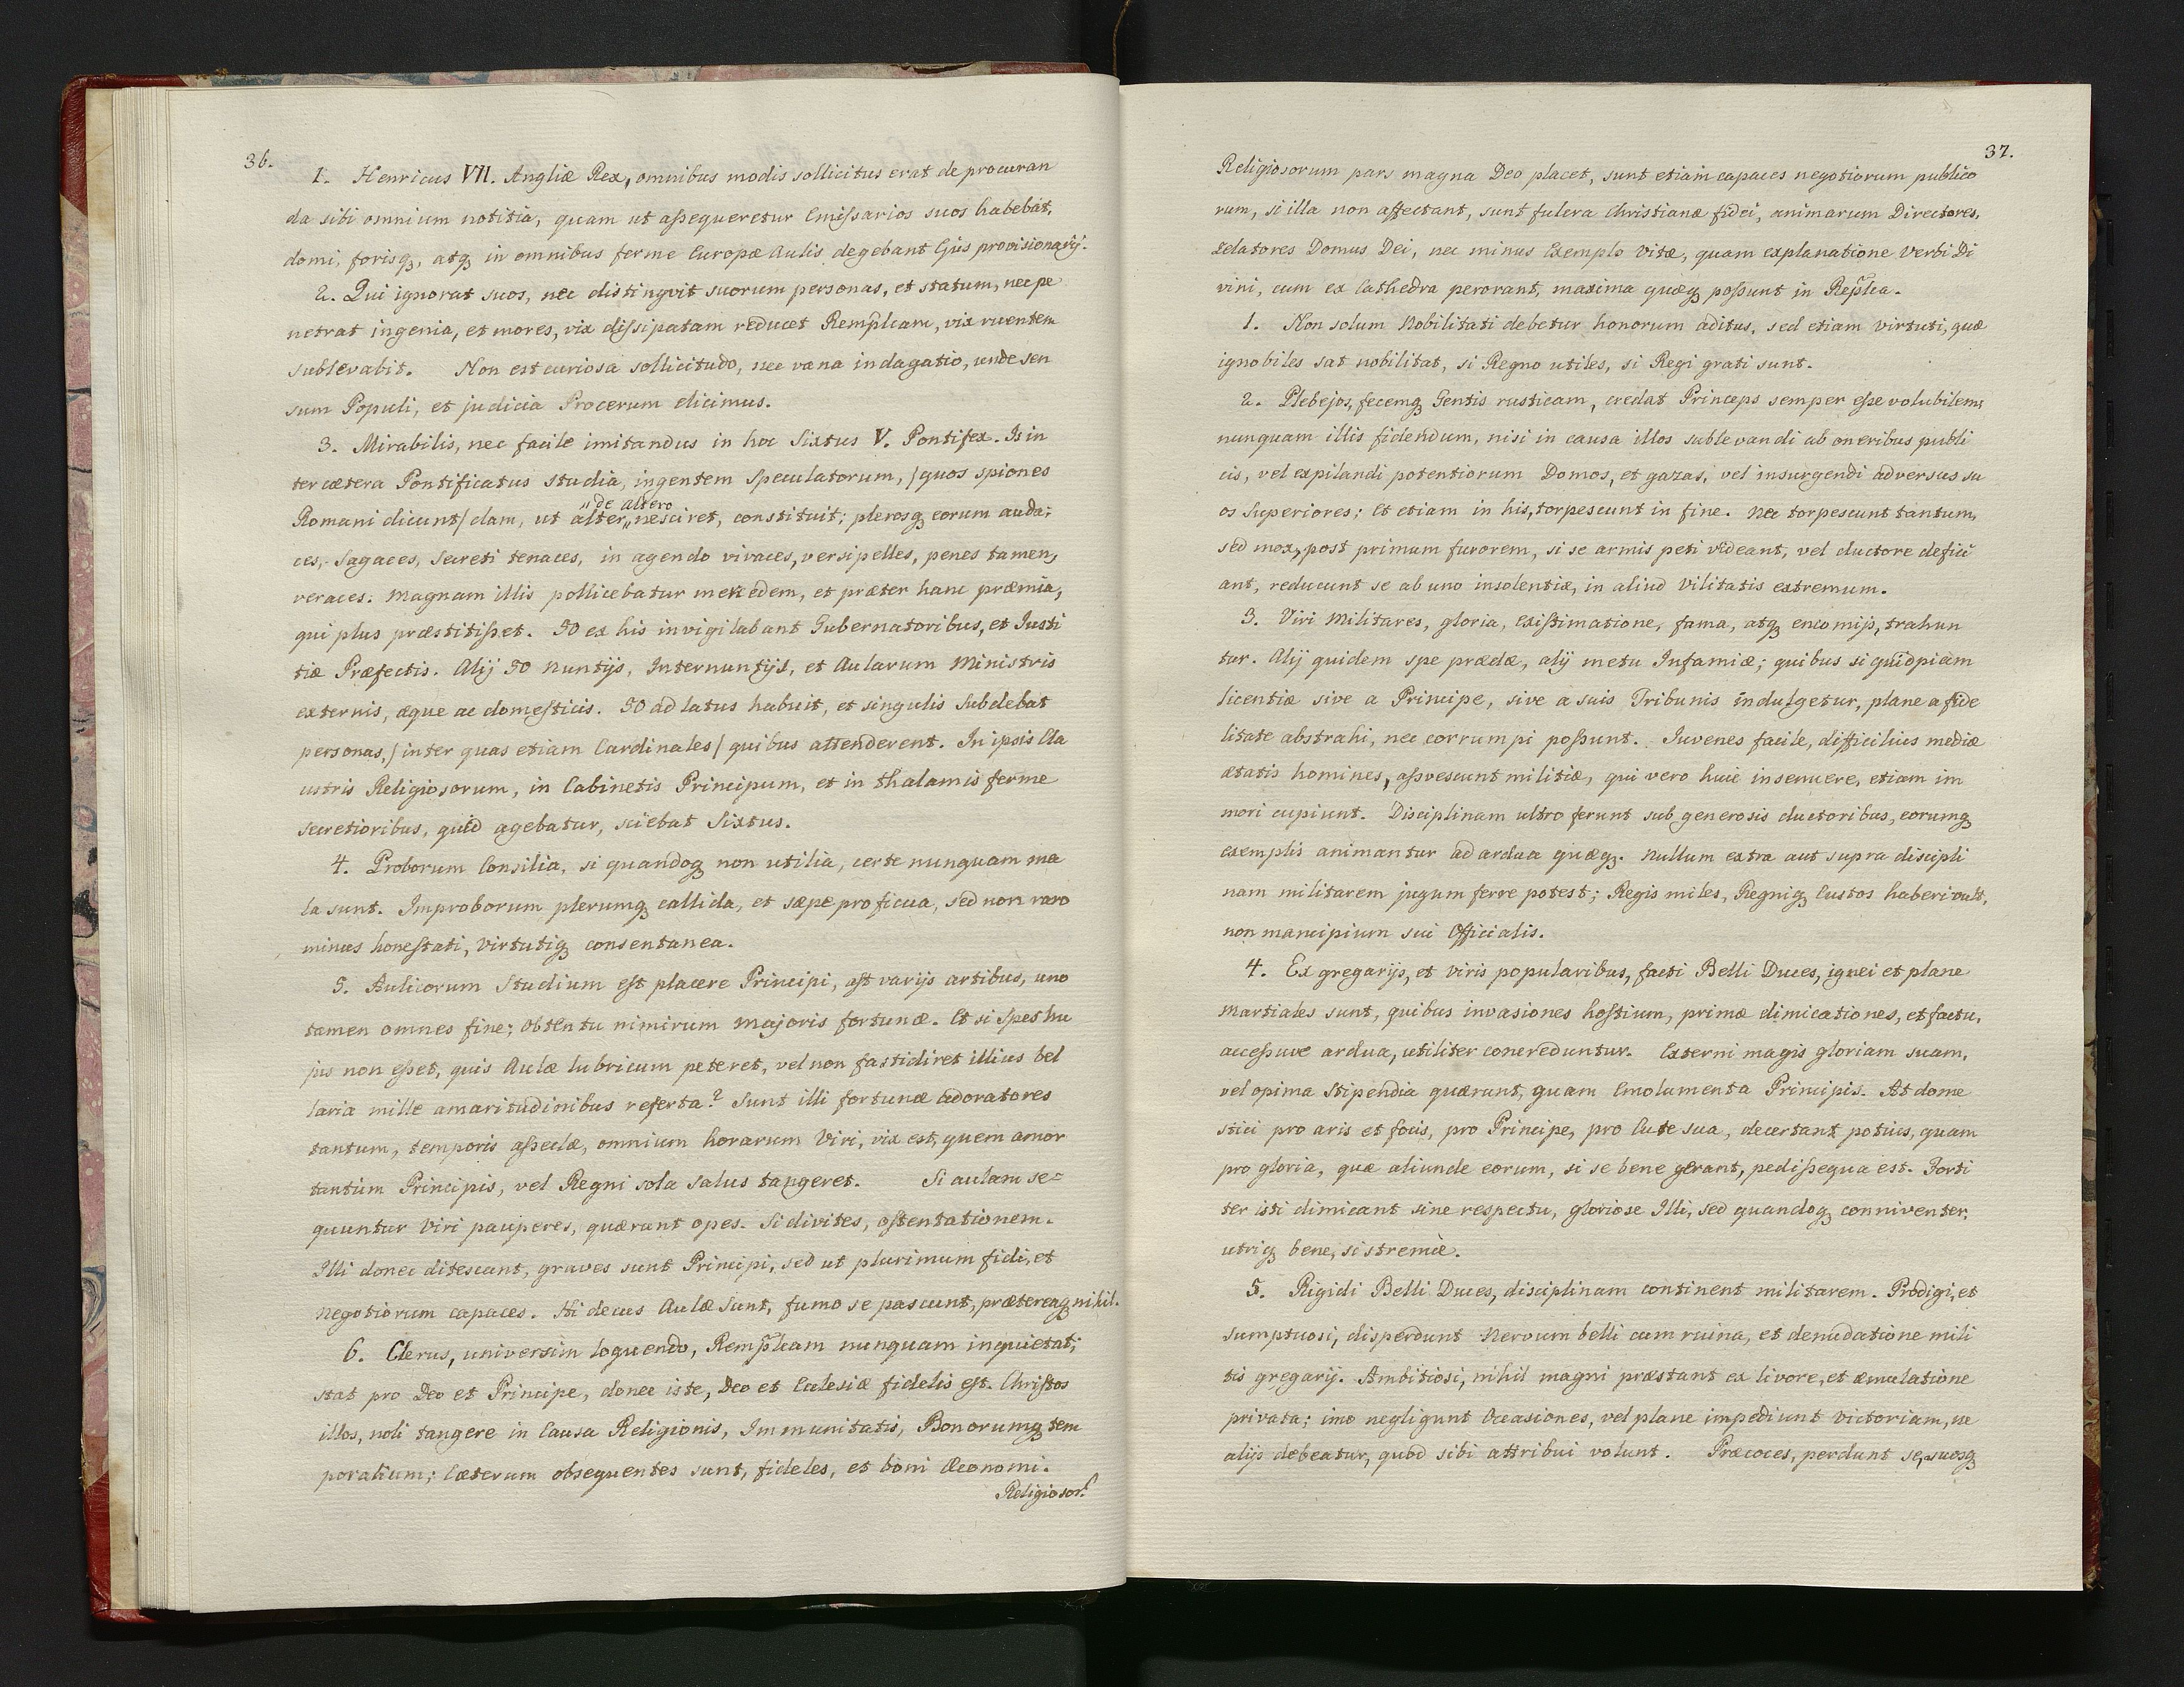 36.
1. Henricus VII. Angliæ Rex, omnibus modis sollicitus erat de procuran
da sibi omnium notitia, quam ut aſsequeretur Emiſsarios suos habebat,
domi, forisq, atq in omnibus ferme Europæ Aulis degebant Ejus provisionarij.
2. Qui ignorat suos, nec distingvit suorum personas, et statum, nec pe
netrat ingenia, et mores, vix diſsipatam reducet Rempl̃cam, vix ruentem
sublevabit. Non est curiosa sollicitudo, nec vana indagatio, unde sen
sum Populi, et judicia Procerum elicimus.
3. Mirabilis, nec facile imitandus in hoc Sixtus V. Pontifex. Is in
ter cætera Pontificatus studia, ingentem Speculatorum, /quos spiones
„de altero
Romani dicunt/ clam, ut alter „nesciret, constituit; plerosq eorum auda:
ces, Sagaces, Secreti tenaces, in agendo vivaces, versipelles, penes tamen,
veraces. Magnam illis pollicebatur mercedem, et præter hanc præmia,
qui plus præstitiſset. 50 ex his invigilabant Gubernatoribus, et Justi
tiæ Præfectis. Alij 50 Nuntijs, Internuntijs, et Aularum Ministris
externis, æque ac domeſticis. 50 ad latus habuit, et singulis Subdebat
personas, /inter quas etiam Cardinales/ quibus attenderent. In ipsis Cla
ustris Religiosorum, in Cabinetis Principum, et in thalamis ferme
secretioribus, quid agebatur, sciebat Sixtus.
4. Proborum Consilia, si quandoq non utilia, certe nunquam ma
la sunt. Improborum plerumq callida, et sæpe proficua, sed non raro
minus honeſtati, Virtutiq consentanea.
5. Aulicorum Studium eſt placere Principi, aſt varijs artibus, uno
tamen omnes fine; obtentu nimirum majoris fortunæ. Et si Spes hu
jus non eſset, quis Aulæ lubricum peteret, vel non fastidiret illius bel
laria mille amaritudinibus referta? Sunt illi fortunæ adoratores
tantum, temporis aſseclæ, omnium horarum Viri, vix est, quem amor
tantùm Principis, vel Regni sola salus tangeret. Si aulam se=
quuntur Viri pauperes, quærunt opes. Si divites, oſtentationem.
Illi donec ditescant, graves sunt Principi, sed ut plurimum fidi, et
negotiorum capaces. Hi decus Aulæ Sunt, fumo se pascunt, prætereaq nihil.
6. Clerus, universim loquendo, Rempl̃cam nunquam inquietat;
stat pro Deo et Principe, donec iste, Deo et Ecclesiæ fidelis eſt. Chriſtos
illos, noli tangere in Causa Religionis, Immunitatis, Bonorumq tem
poralium; Cæterum obsequentes sunt, fideles, et boni Œconomi.
Religiosor̃
37.
Religiosorum pars magna Deo placet, sunt etiam capaces negotiorum publico
rum, si illa non affectant, sunt fulcra Christianæ fidei, animarum Directores,
zelatores Domus Dei, nec minus Exemplo Vitæ, quam explanatione Verbi Di
vini, cum ex Cathedra perorant, maxima quæq poſsunt in Repl̃ca.
1. Non solum Nobilitati debetur honorum aditus, sed etiam virtuti, quæ
ignobiles sat nobilitat, si Regno utiles, si Regi grati sunt.
2. Plebejos, fecemq Gentis rusticam, credat Princeps semper eſse volubilem,
nunquam illis fidendum, nisi in causa illos sublevandi ab oneribus publi
cis, vel expilandi potentiorum Domos, et gazas, vel insurgendi adversus su
os Superiores; Et etiam in his, torpescunt in fine. Nec torpescunt tantum,
sed mox, post primum furorem, si se armis peti videant, vel ductore defici
ant, reducunt se ab uno insolentiæ, in aliud Vilitatis extremum.
3. Viri Militares, gloria, Exiſtimatione, fama, atq encomijs, trahun
tur. Alij quidem spe prædæ, alij metu Infamiæ; quibus si quidpiam
licentiæ sive a Principe, sive a suis Tribunis indulgetur, plane a fide
litate abstrahi, nec corrumpi poſsunt. Iuvenes facile, difficilius mediæ
ætatis homines, aſsvescunt militiæ, qui vero huic insenuere, etiam im
mori cupiunt. Disciplinam ultro ferunt sub generosis ductoribus, eorumq
exemplis animantur ad ardua quæq. Nullum extra aut supra discipli
nam militarem jugum ferre potest; Regis miles, Regniq Custos haberi vult,
non mancipium sui Officialis.
4. Ex gregarijs, et viris popularibus, facti Belli Duces, ignei et plane
Martiales sunt, quibus invasiones hoſtium, primæ dimicationes, et factu,
acceſsuve ardua, utiliter concreduntur. Externi magis gloriam suam,
vel opima Stipendia quærunt, quam Emolumenta Principis. At dome
stici pro aris et focis, pro Principe, pro Cute sua, decertant potius, quam
pro gloria, quæ aliunde eorum, si se bene gerant, pediſsequa est. Forti
ter isti dimicant sine respectu, gloriose Illi, sed quandoq conniventer,
utriq bene, si strenuè.
5. Rigidi Belli Duces, disciplinam continent militarem. Prodigi, et
sumptuosi, disperdunt Nervum belli cum ruina, et denudatione mili
tis gregarij. Ambitiosi, nihil magni præstant ex livore, et æmulatione
privata; imo negligunt Occasiones, vel plane impediunt Victoriam, ne
alijs debeatur, quod sibi attribui volunt. Præcoces, perdunt se, suosq